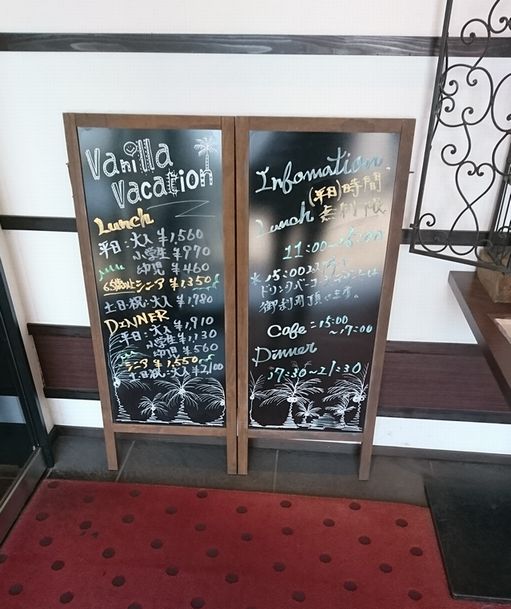 Vanilla
Vacation
Lunch
平日:大人 ¥1,560
小学生 ¥970
幼児 ¥460
65歳以上シニア ¥1,350
土日・祝:大人 ¥1,980
DINNER
平日:大人 ¥1,910
小学生 ¥1,130
幼児 ¥560
シニア ¥1,550
土日・祝:大人 ¥2,100
Infomation
(平日)時間
Lunch 無制限
11:00~
御利用頂けます。
Cafe=15:00
~17:00
Dinner
17:30~21:30